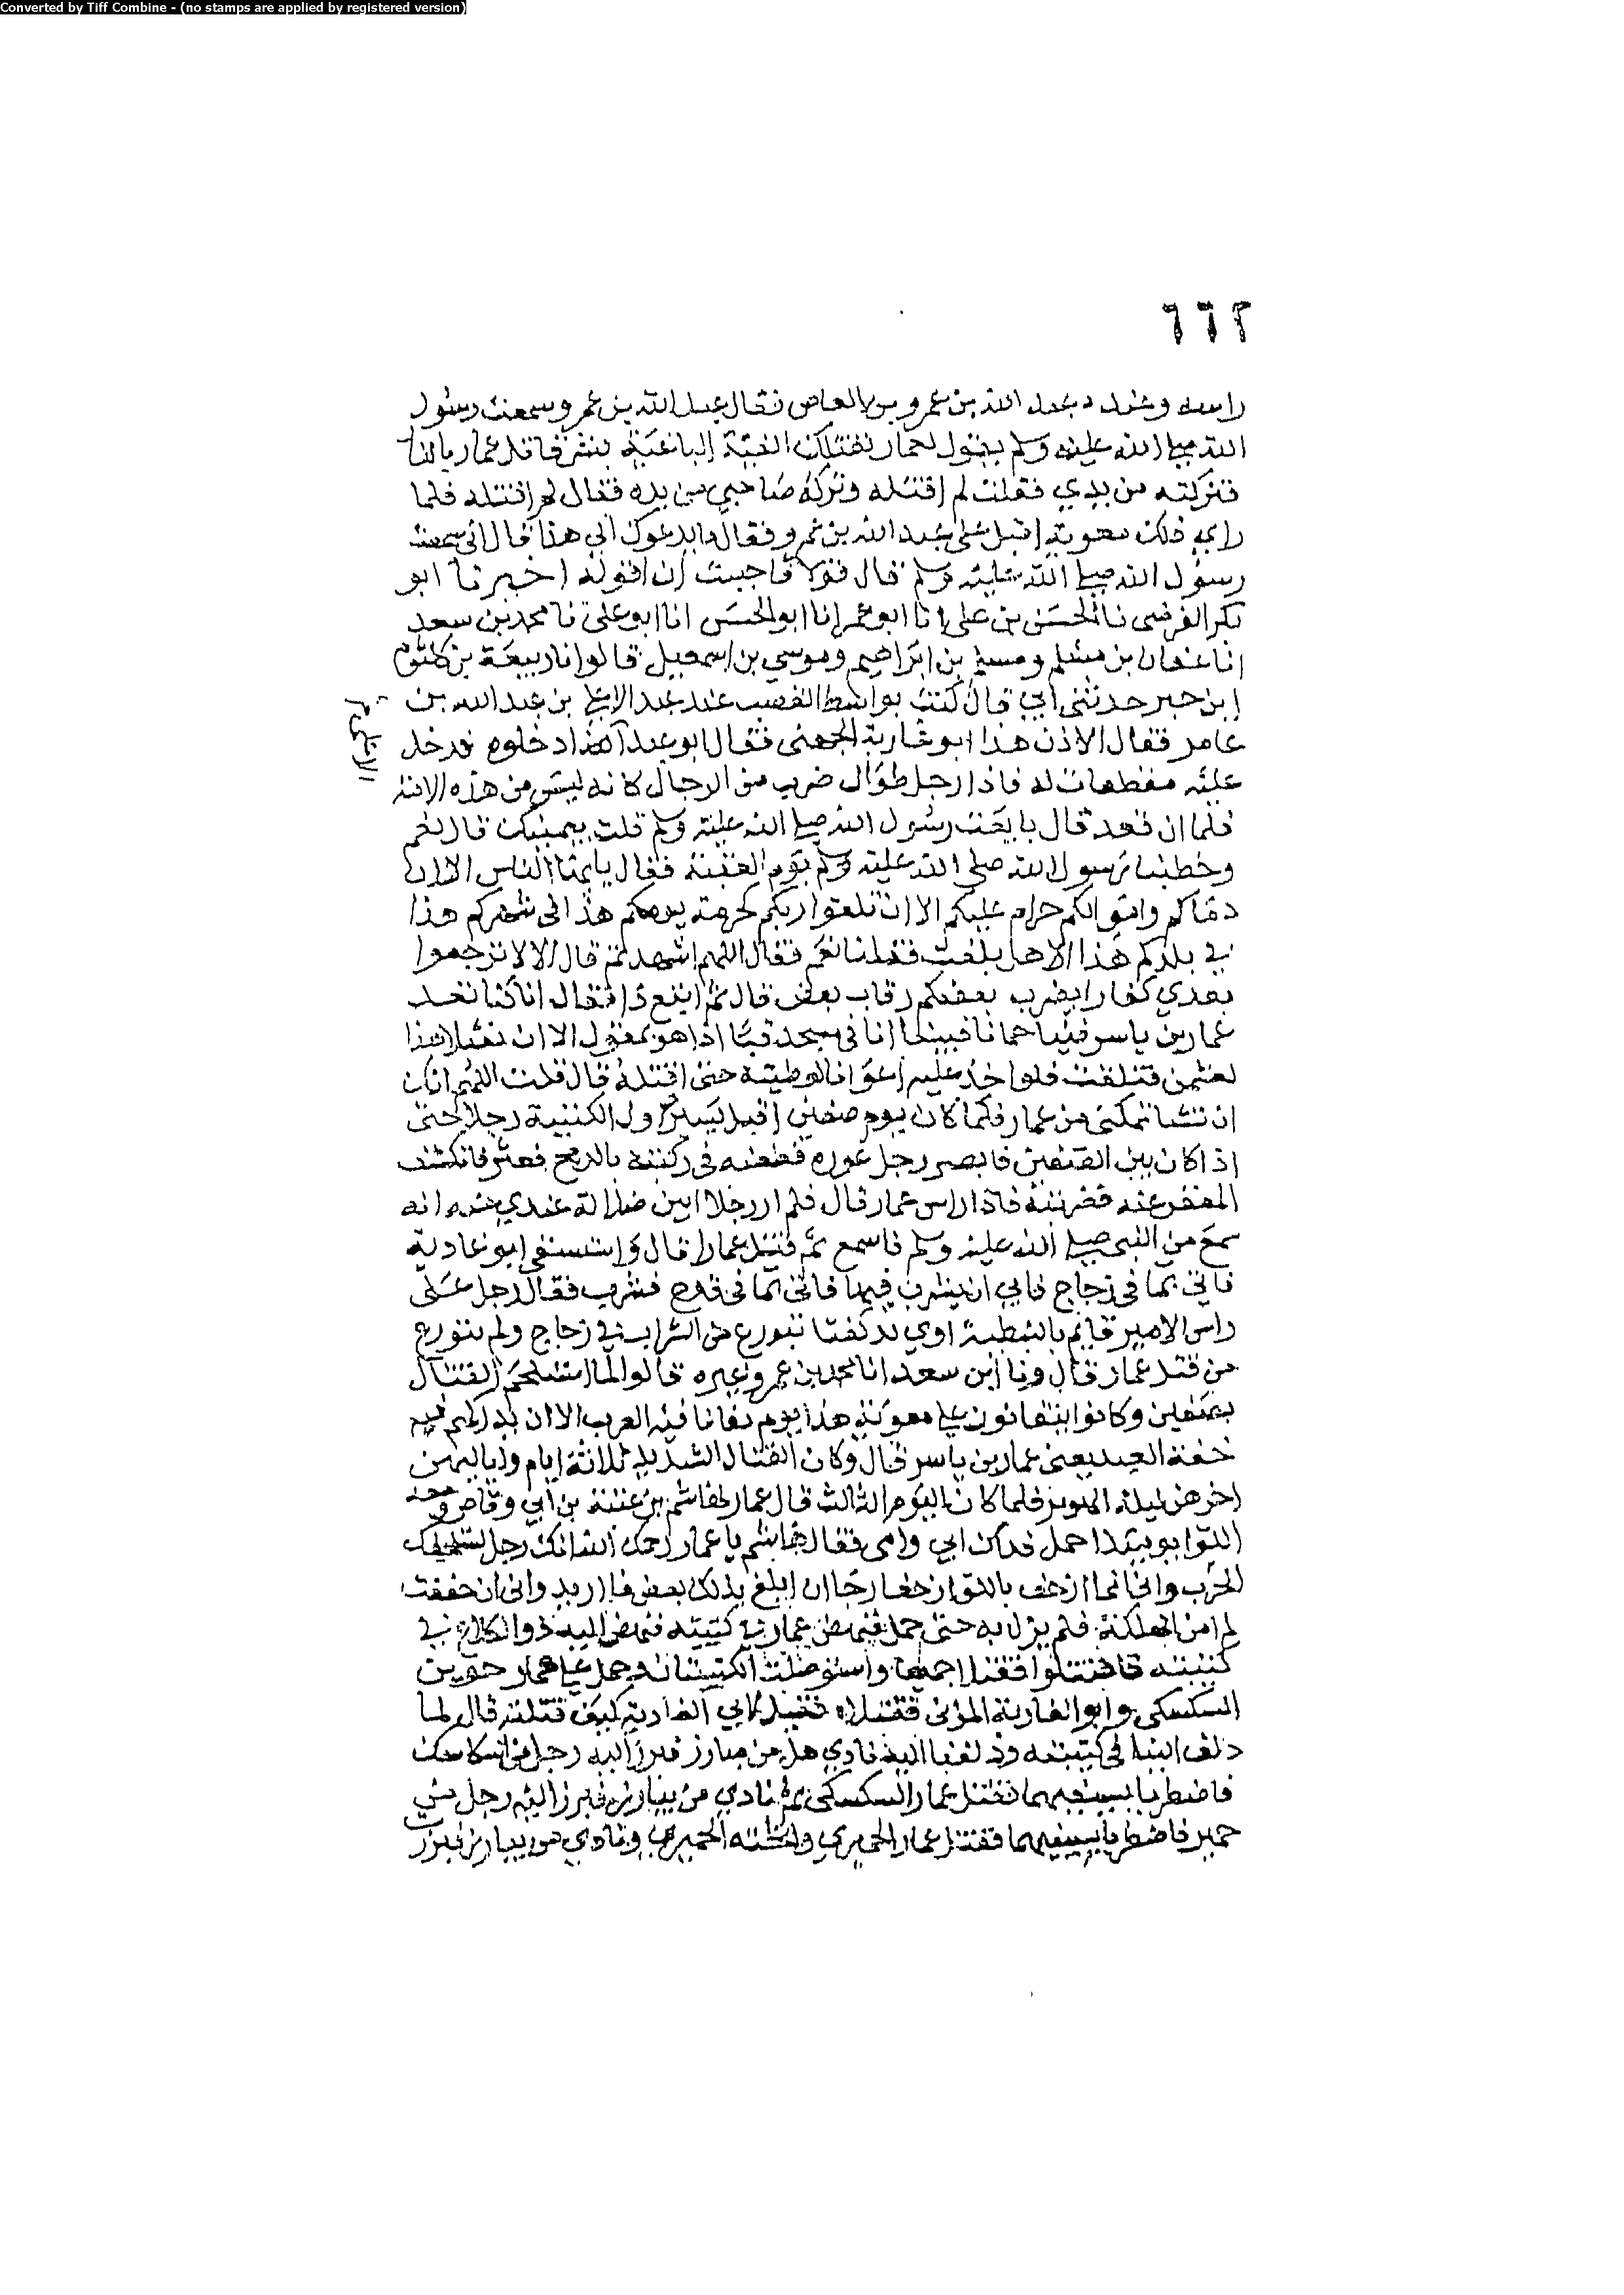 Converted by Tiff Combine - (no stamps are applied by registered version)
٦٦٢
راسه وعنده عبد الله بن عمرو بن العاص فقال عبد الله بن عمرو سمعت رسول
الله صلى الله عليه وسلم يقول لعمار تقتلك الفئة الباغية بشر قاتل عمار بالنار
فتركته من يدي فقلت لم اقتله وتركه صاحبي من يده فقال لم اقتله فلما
راي ذلك معوية اقبل على عبد الله بن عمرو فقال ما يدعوك الى هذا قال اني سمعت
رسول الله صلى الله عليه وسلم قال قولا فاحببت ان اقوله اخبرنا ابو
بكر الفرضى نا الحسن بن علي انا ابو عمر انا ابو الحسن انا ابو علي نا محمد بن سعد
انا عفان بن مسلم ومسلم بن ابراهيم وموسي بن اسمعيل قالوا نا ربيعة بن كلثوم
ابن جبر حدثنى ابي قال كنت بواسط القصب عند عبد الاعلى بن عبد الله بن
عامر فقال الاذن هذا ابو غادية الجهنى فقال عبد ادخلوه فدخل
عليه مقطعات له فاذا رجل طوال ضرب من الرجال كانه ليس من هذه الامة
فلما ان قعد قال بايعت رسول الله صلى الله عليه وسلم قلت بيمينك قال نعم
وخطبنا رسول الله صلى الله عليه وسلم يوم العقبة فقال يايها الناس الا ان
دماكم واموالكم حرام عليكم الا ان تلقوا ربكم كحرمة يومكم هذا في شهركم هذا
في بلدكم هذا الا هل بلغت فقلنا نعم فقال اللهم اشهد ثم قال الا لا ترجعوا
بعدي كفارا يضرب بعضكم رقاب بعض قال ثم اتبع ذا فقال انا كنا نعد
عمار بن ياسر فينا حنانا فبينا انا في مسجد قبا اذا هو يقول الا ان نعثلا هذا
لعثمن فتلفت فلو اجد عليه اعوانا لوطيته حتى اقتله قال قلت اللهم انك
ان تشا تمكنى من عمار فلما كان يوم صفين اقبل يسير اول الكتيبة رجلا حتى
اذا كان بين الصفين فابصر رجل عورة فطعنه في ركبته بالرمح فعثر فانكشف
المغفر عنه فضربته فاذا راس عمار قال فلم ار رجلا ابين ضلالة عندي منه انه
سمع من النبي صلى الله عليه وسلم ما سمع ثم قتل عمارا قال واستسقى ابو غادية
فاتي بما في زجاج فابي ان يشرب فيها فاتى بما في قدح فشرب فقال رجل على
راس الامير قايم بالنبطية اوي يد كفتا يتورع عن الشراب في زجاج ولم يتورع
من قتل عمار قال ونا ابن سعد انا محمد بن عمر وغيره قالوا لما استلحم القتال
بصفين وكادوا يتفانون قال معوية هذا يوم تفانا فيه العرب الا ان تدركهم فيه
خفة العبد يعنى عمار بن ياسر قال وكان القتال الشديد ثلاثة ايام ولياليهن
اخرهن ليلة الهرير فلما كان اليوم الثالث قال عمار لهاشم بن عتبة بن ابي وقاص ومعه
اللوا يوميذ احمل فداك ابي وامى فقال هاشم يا عمار رحمك الله انك رجل تستخفك
الحرب واني انما ازحف باللوا زحفا رجا ان ابلغ بذلك بعض ما اريد واني ان خففت
لم امن الهلكة فلم يزل به حتى حمل فنهض عمار في كتيبته فنهض اليه ذو الكلاع في
كتيبته فاقتتلوا فقتلا جميعا واستوصلت الكتيبتان وحمل على عمار حوي بن
السكسكى وابو الغادية المزنى فقتلاه فقيل لابي الغادية كيف قتلته قال لما
دلف الينا في كتيبته ودلفنا اليه نادي هل من مبارز فبرز اليه رجل من السكاسك
فاضطربا بسيفيهما فقتل عمار السكسكى ثم نادي من يبارز فبرز اليه رجل من
حمير فاضطربا بسيفيهما فقتل عمار الحميري واثخنه الحميري ونادي من يبارز فبرزت